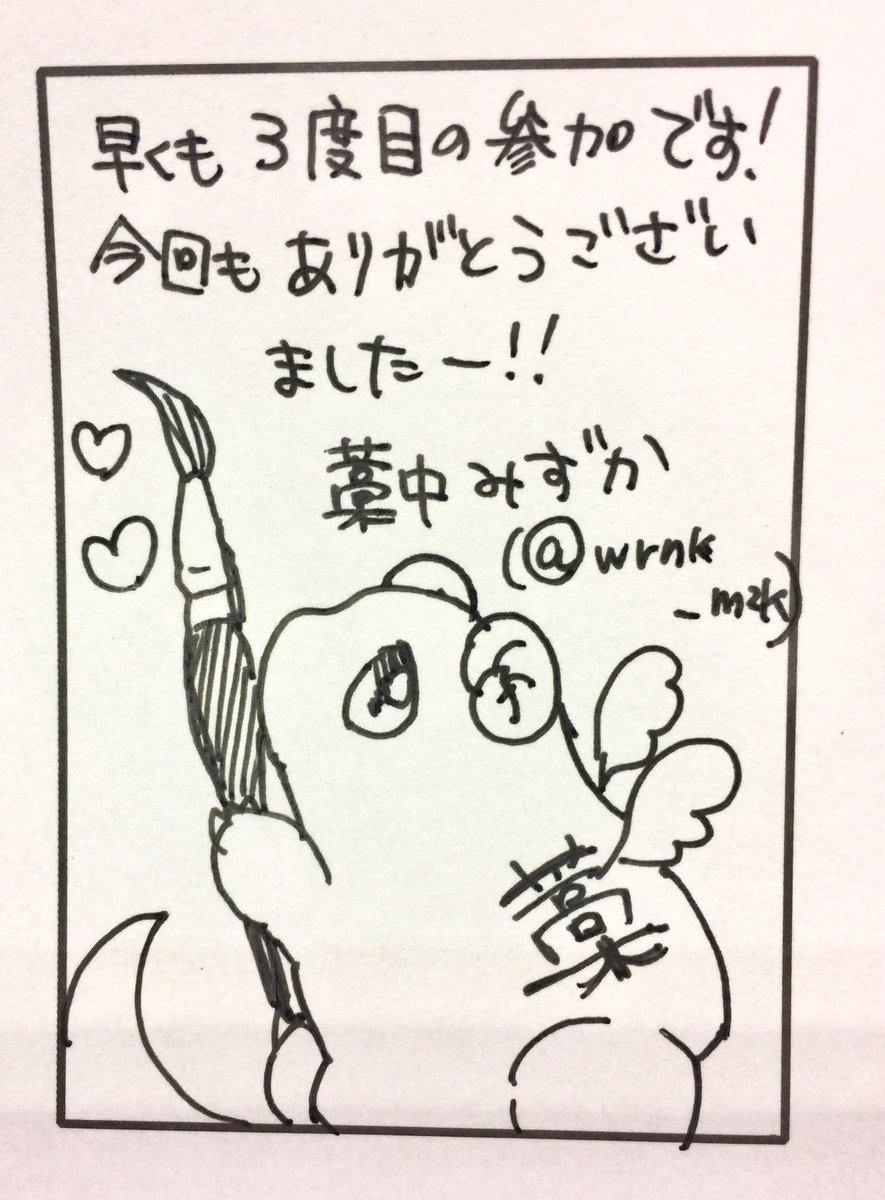 早くも3度目の参加です!
今回もありがとうござい
ましたー!!
藁中みずか
(@wrnk
_mzk)
藁